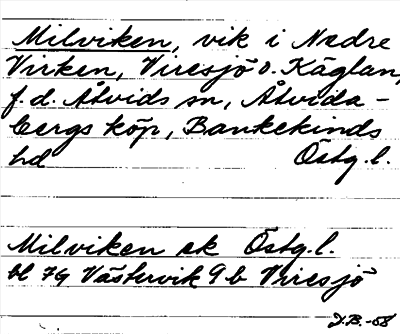 Milviken, vik i Nedre
Virken, Viresjö o. Käglan,
f.d. Åtvids sn, Åtvida-
bergs köp, Bankekinds
hd Östg.l.
Milviken ek Östg.l.
bl 7G Västervik 9b Viresjö
J.B.-68